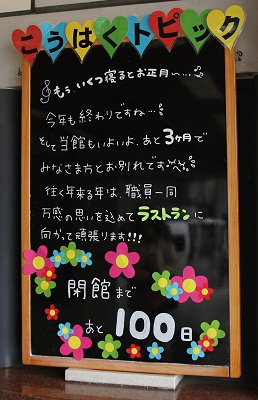 こうはくトピック
もぅ、いくつ寝るとお正月〜…
今年も終わりですね…
そして当館もいよいよ、あと3ヶ月で
みなさま方とお別れです
往く年来る年は、職員一同
万感の思いを込めてラストランに
向かって頑張ります!!!
閉館まで
あと100日